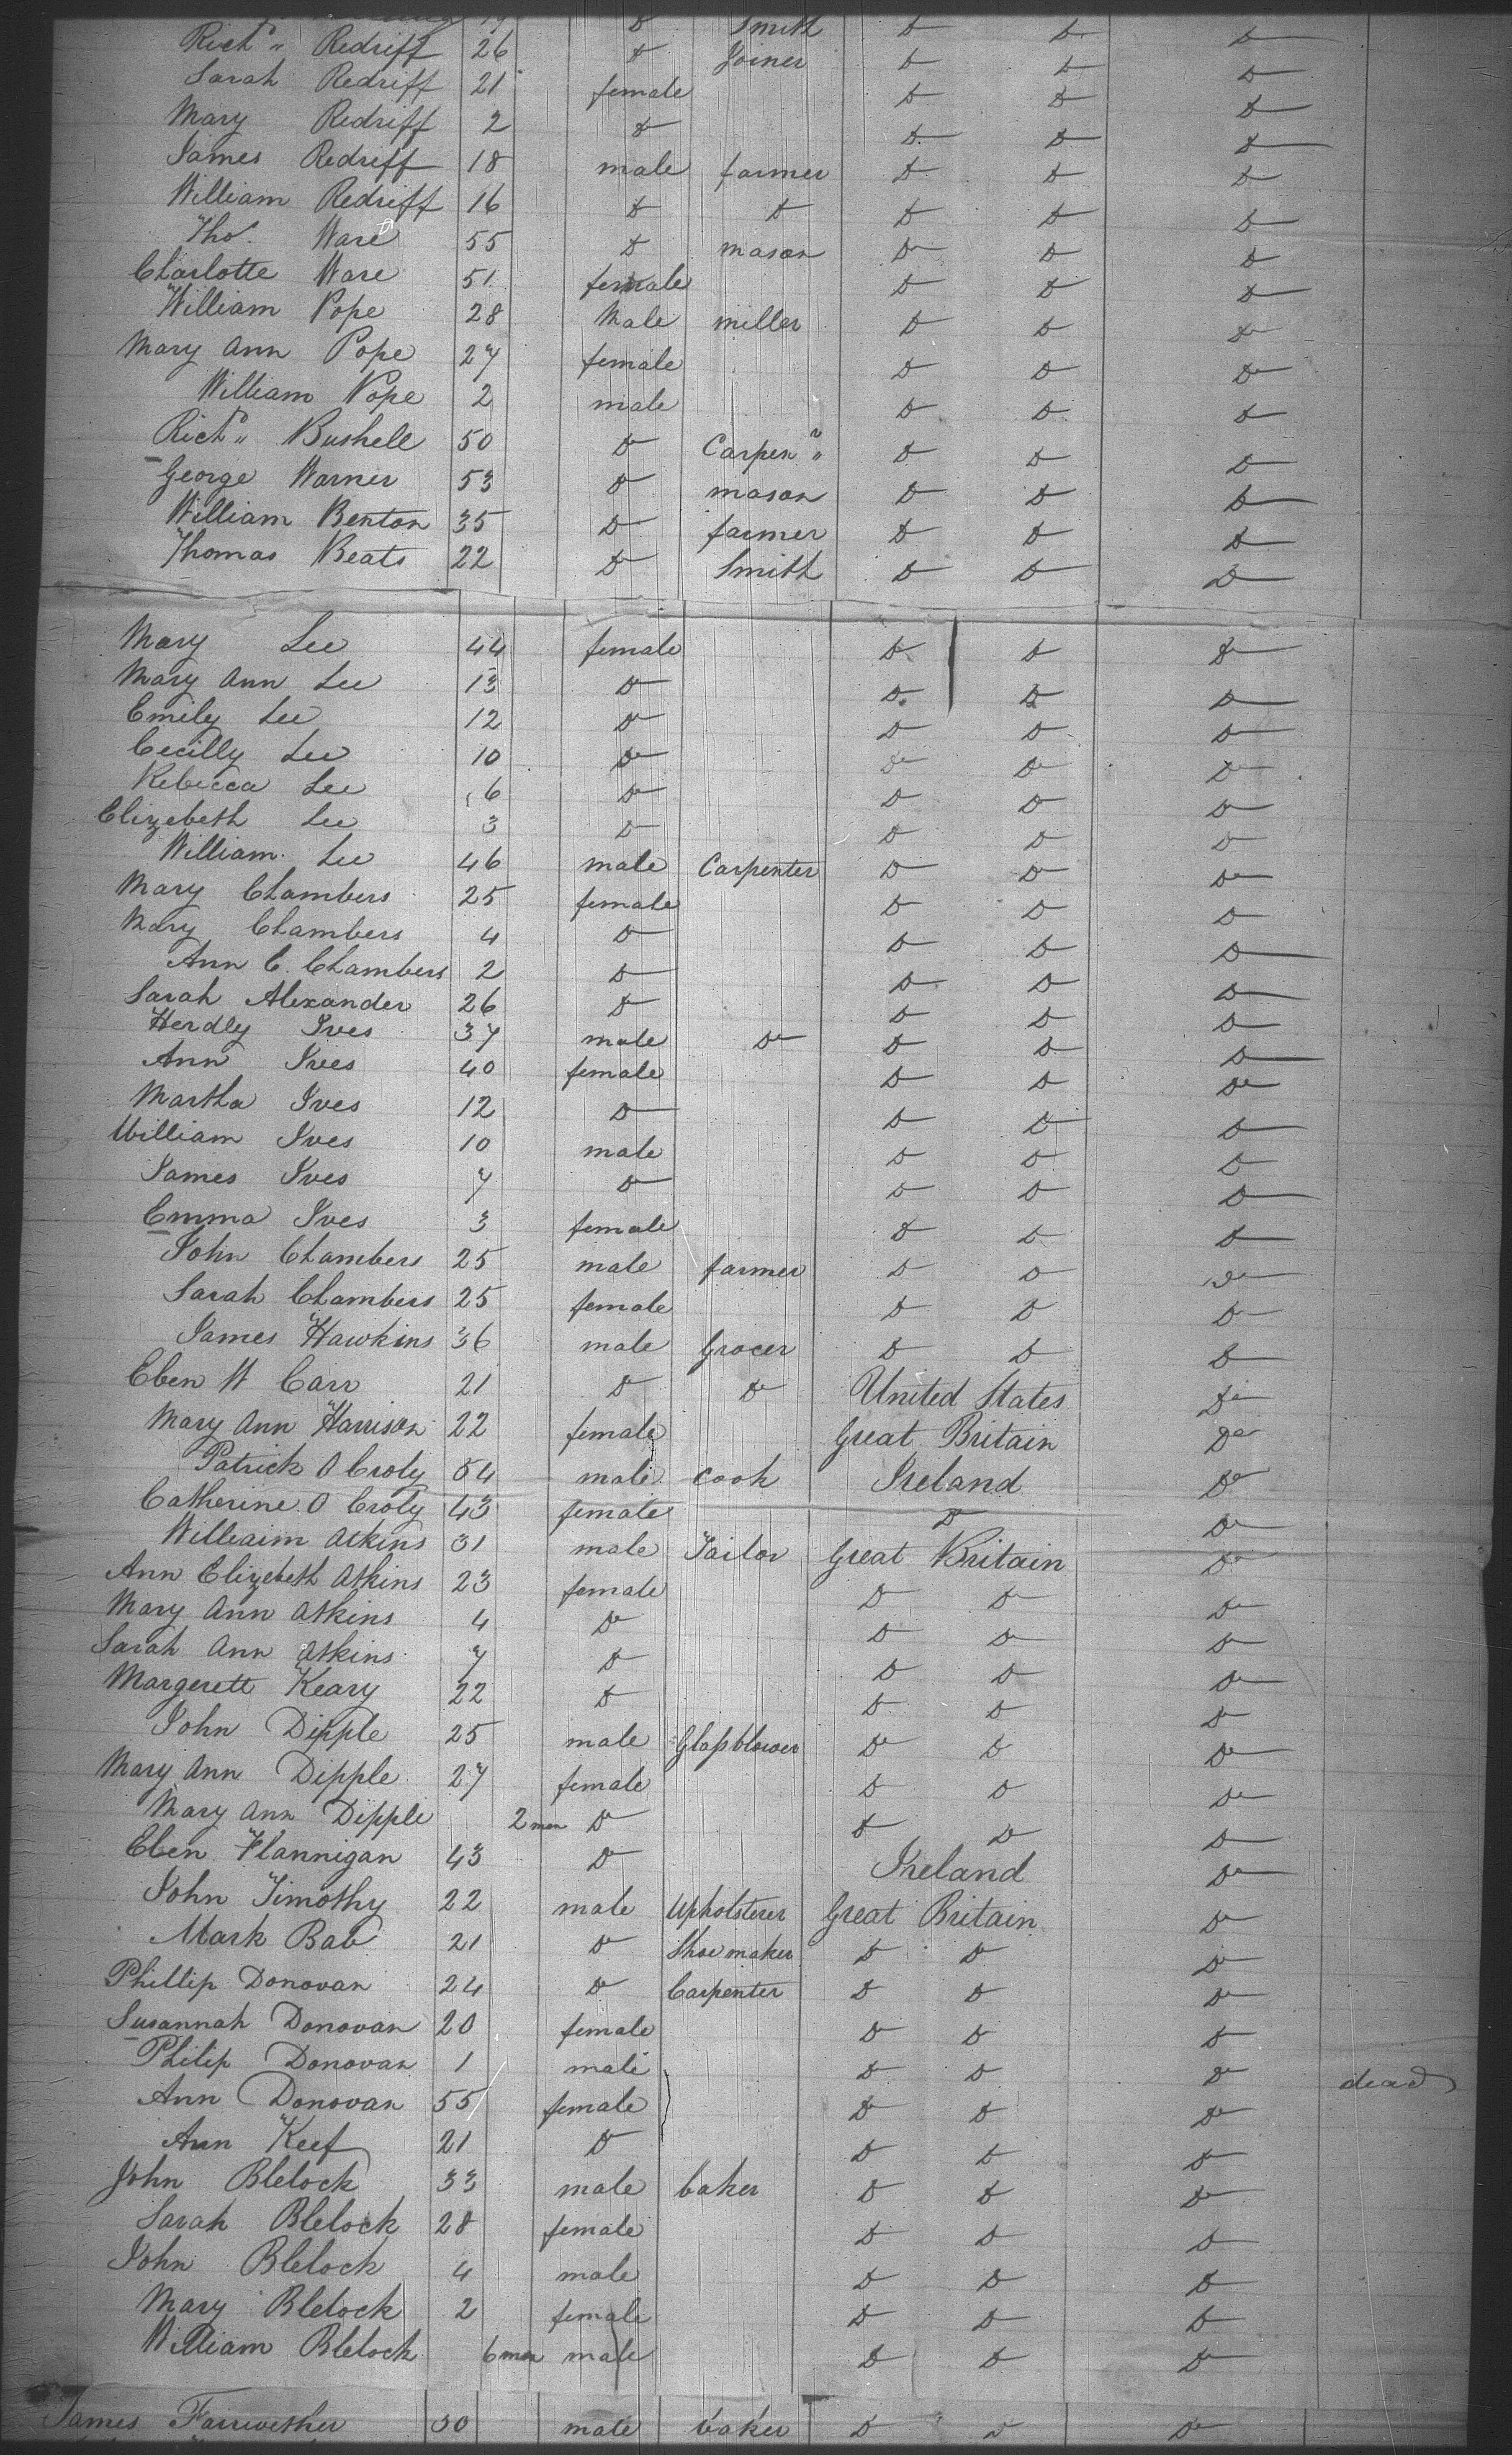 19 Do Smith Do Do Do
Richd " Redriff 26 Do Joiner Do Do Do
Sarah Redriff 21 female Do Do Do
Mary Redriff 2 Do Do Do Do
James Redriff 18 male farmer Do Do Do
William Redriff 16 Do Do Do Do Do
Tho. Ware 55 Do mason Do Do Do
Charlotte Ware 51 female Do Do Do
William Pope 28 Male miller Do Do Do
Mary Ann Pope 27 female Do Do Do
William Pope 2 male Do Do Do
Richd " Bushell 50 Do Carpenr " Do Do Do
George Warner 53 Do mason Do Do Do
William Benton 35 Do farmer Do Do Do
Thomas Beats 22 Do Smith Do Do Do
Mary Lee 44 female Do Do Do
Mary Ann Lee 13 Do Do Do Do
Emily Lee 12 Do Do Do Do
Cecilly Lee 10 Do Do Do Do
Rebecca Lee 6 Do Do Do Do
Elizebeth Lee 3 Do Do Do Do
William Lee 46 male Carpenter Do Do Do
Mary Chambers 25 female Do Do Do
Mary Chambers 4 Do Do Do Do
Ann C. Chambers 2 Do Do Do Do
Sarah Alexander 26 Do Do Do Do
Herdly Ives 37 male Do Do Do Do
Ann Ives 40 female Do Do Do
Martha Ives 12 Do Do Do Do
William Ives 10 male Do Do Do
James Ives 7 Do Do Do Do
Emma Ives 3 female Do Do Do
John Chambers 25 male farmer Do Do Do
Sarah Chambers 25 female Do Do Do
James Hawkins 36 male Grocer Do Do Do
Eben W Carr 21 Do Do United States Do
Mary Ann Harrison 22 female Great Britain Do
Patrick O Croly 54 male Cook Ireland Do
Catherine O Croly 43 female Do Do
Williaim Atkins 31 male Tailor Great Britain Do
Ann Elizebeth Atkins 23 female Do Do Do
Mary Ann Atkins 4 Do Do Do Do
Sarah Ann Atkins 7 Do Do Do Do
Margerett Keary 22 Do Do Do Do
John Dipple 25 male Glassblower Do Do Do
Mary Ann Dipple 27 female Do Do Do
Mary Ann Dipple 2 mon Do Do Do Do
Elen Flannigan 43 Do Ireland Do
John Timothy 22 male Upholsterer Great Britain Do
Mark Bab 21 Do Shoemaker Do Do Do
Phillip Donovan 24 Do Carpenter Do Do Do
Susannah Donovan 20 female Do Do Do
Philip Donovan 1 male Do Do Do dead
Ann Donovan 55 female Do Do Do
Ann Keef 21 Do Do Do Do
John Blelock 33 male baker Do Do Do
Sarah Blelock 28 female Do Do Do
John Blelock 4 male Do Do Do
Mary Blelock 2 female Do Do Do
William Blelock 6 mon male Do Do Do
James Farrwether 30 male baker Do Do Do